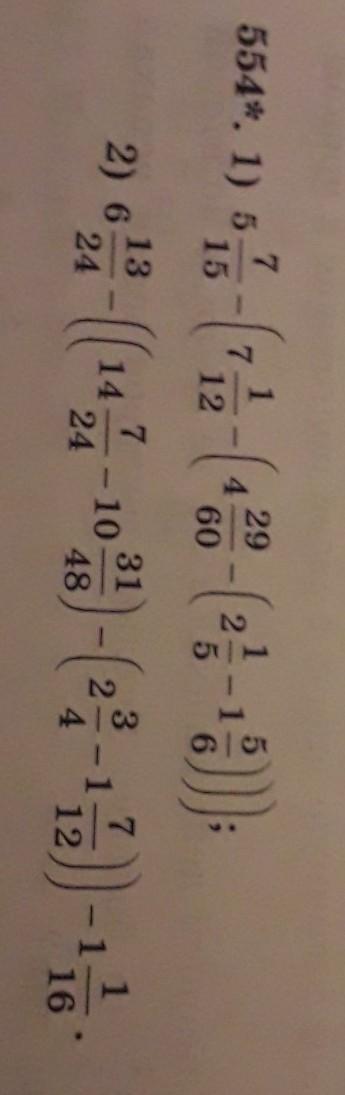 554*. 1) 5 7/15 − (7 1/12 − (4 29/60 − (2 1/5 − 1 5/6)));
2) 6 13/24 − ((14 7/24 − 10 31/48) − (2 3/4 − 1 7/12)) − 1 1/16.